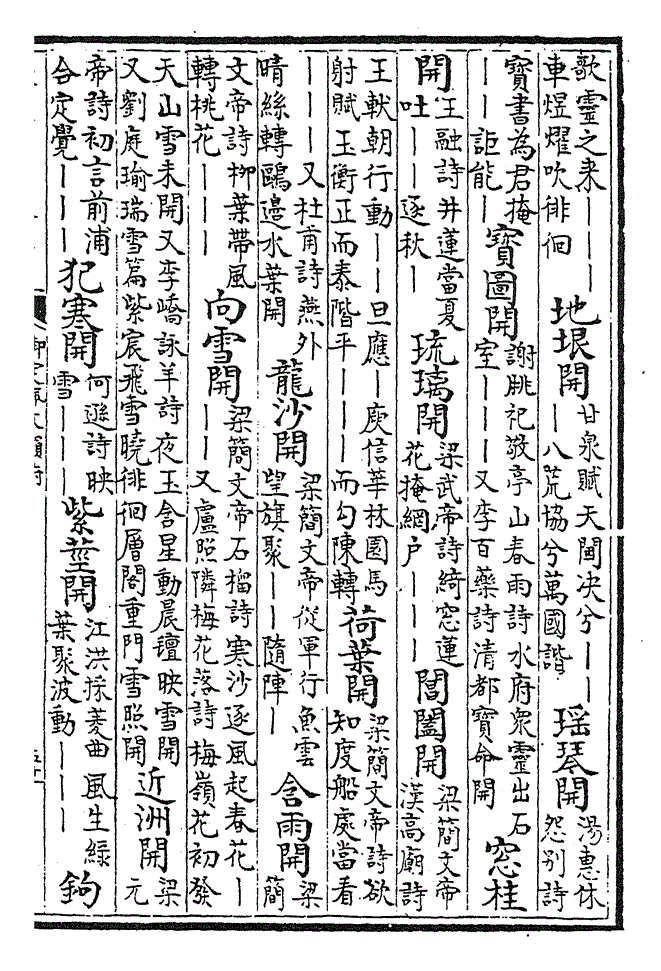 歌靈之来————車煜燿吹徘徊 地垠開 甘泉賦天閫决兮———八荒協兮萬國諧 瑶琴開 湯惠休怨别詩
寳書為君掩——詎能— 寳圖開 謝朓祀敬亭山春雨詩水府衆靈出石室———又李百藥詩清都寳命開 窓桂
開 王融詩井蓮當夏吐——逐秋— 琉璃開 梁武帝詩綺窓蓮花掩網户——— 閶闔開 梁簡文帝漢高廟詩
王軑朝行動——旦應—庾信華林園馬射賦玉衡正而泰階平————而勾陳轉 荷葉開 梁簡文帝詩欲知度船處當看
———又杜甫詩燕外晴絲轉鷗邊水葉開 龍沙開 梁簡文帝從軍行魚雲望旗聚——隨陣— 含雨開 梁簡
文帝詩栁葉帶風轉桃花——— 向雪開 梁簡文帝石榴詩寒沙逐風起春花———又盧照隣梅花落詩梅嶺花初發
天山雪未開又李嶠詠羊詩夜玉含星動晨氊映雪開又劉庭瑜瑞雪篇紫宸飛雪曉徘徊層閣重門雪照開 近洲開 梁元
帝詩初言前浦合定覺———— 犯寒開 何遜詩映雪——— 紫莖開 江洪採菱曲風生緑葉聚波動——— 鉤